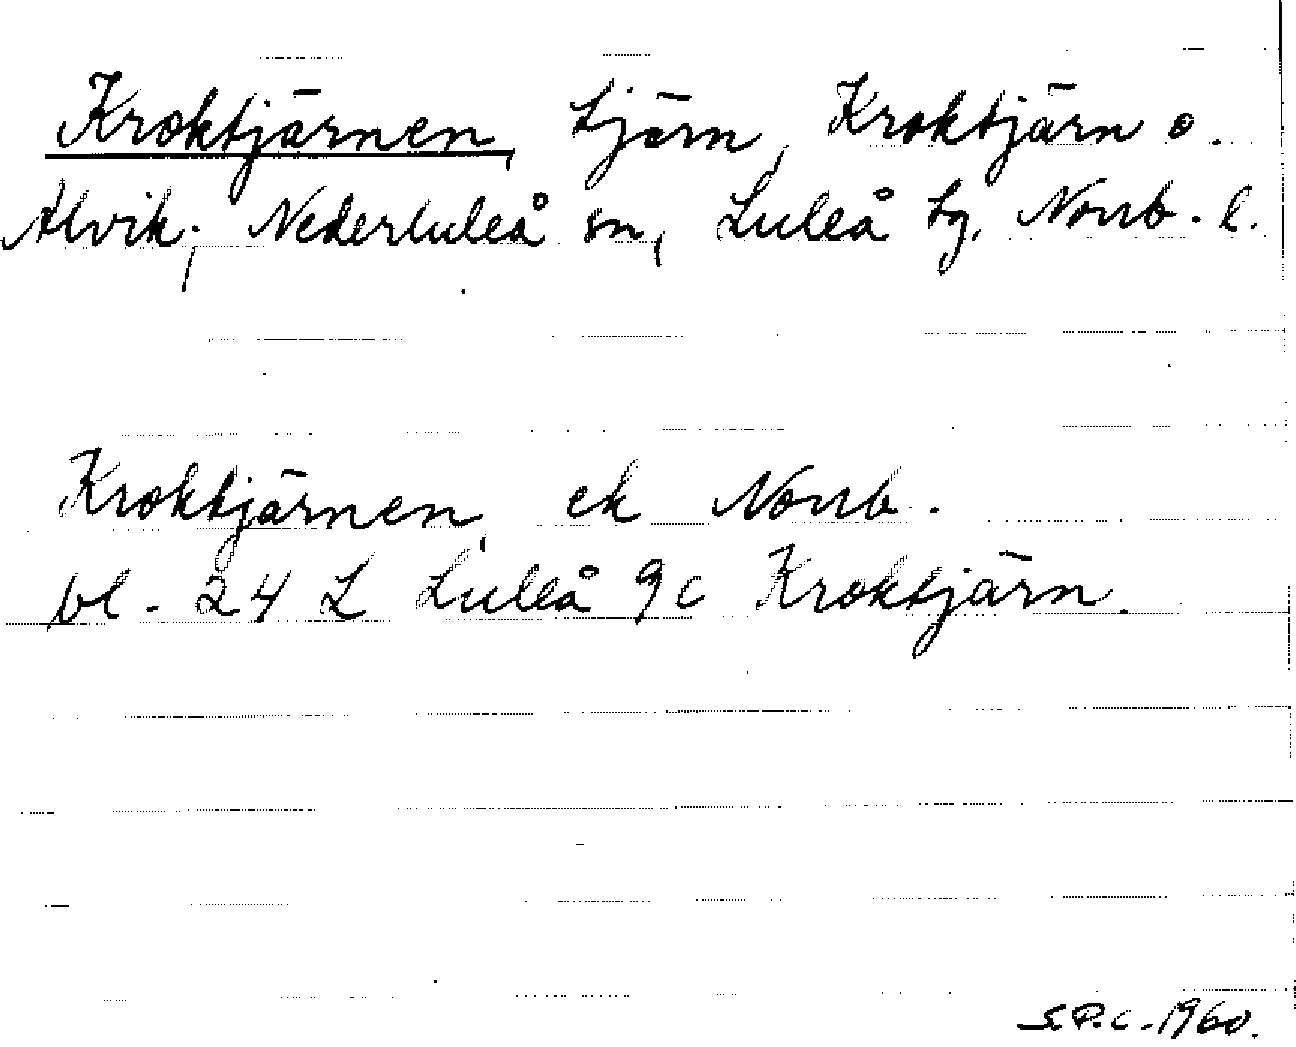 Kroktjärnen, tjärn, Kroktjärn o.
Alvik; Nederluleå sn, Luleå tg, Norrb. l.
Kroktjärnen, ek Norrb.
bl. 24 L Luleå 9c Kroktjärn.
S.P.C. 1960.